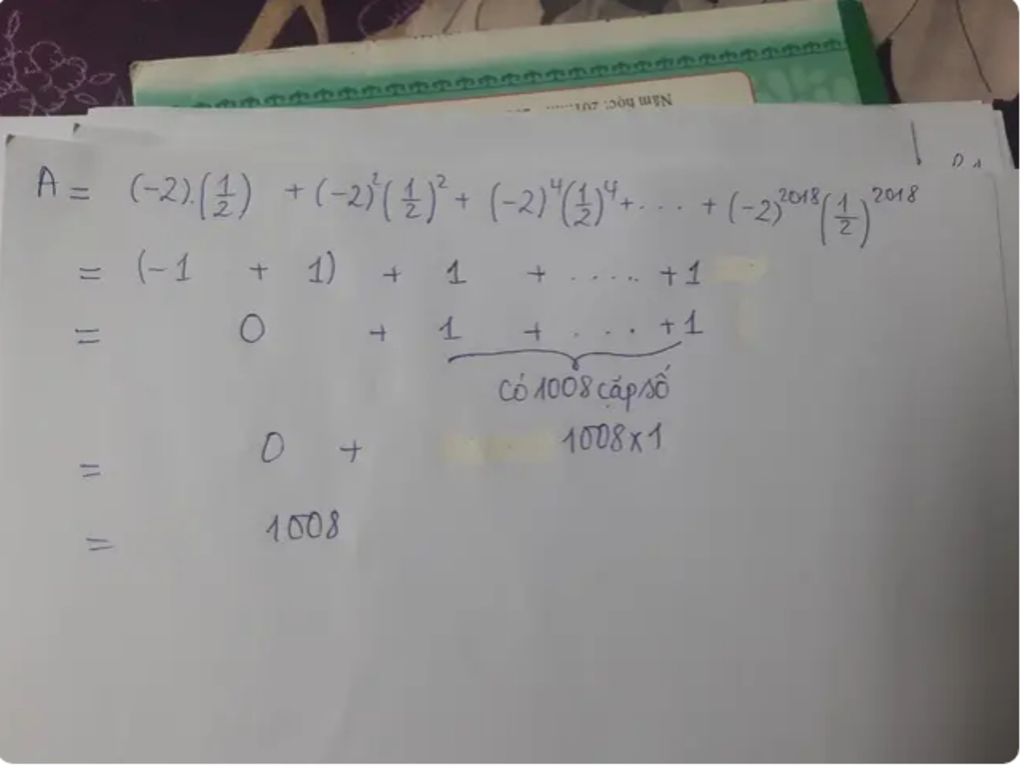 Năm học: 201......
A = (-2).(1/2) + (-2)²(1/2)² + (-2)⁴(1/2)⁴ + .... + (-2)²⁰¹⁸(1/2)²⁰¹⁸
= (-1 + 1) + 1 + ..... + 1
= 0 + 1 + ... + 1
Có 1008 cặp số
= 0 + 1008 x 1
= 1008